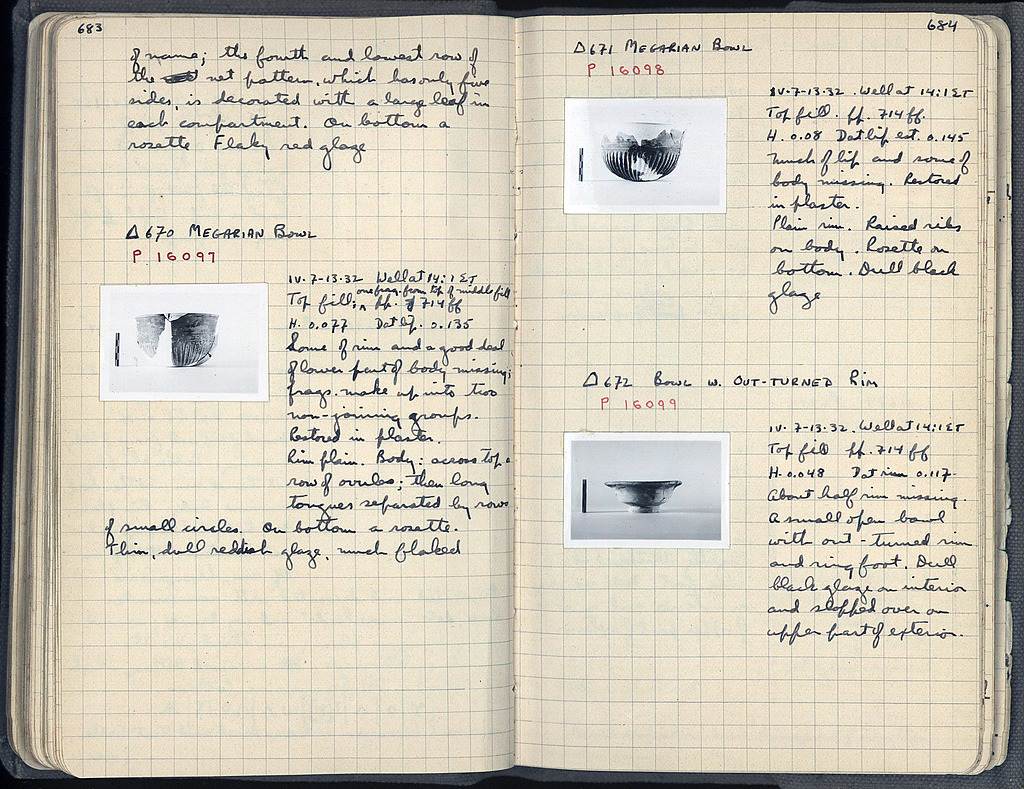 683
of name; the fourth and lowest row of
the net pattern, which has only five
sides, is decorated with a large leaf in
each compartment. On bottom a
rosette Flaky red glaze
Δ670 MEGARIAN BOWL
P 16097
IV-7-13-32 Well at 14:1 ΣΤ
one frag. from top of middle fill
Top fill; pp. 714 ff
H. 0.077 Dat lip. 0.135
Some of rim and a good deal
of lower part of body missing;
frags. make up into two
non-joining groups.
Restored in plaster.
Rim plain. Body: across top a
row of ovules; then long
tongues separated by rows
of small circles. On bottom a rosette.
Thin, dull reddish glaze, much flaked
684
Δ671 MEGARIAN BOWL
P 16098
IV-7-13-32. Well at 14:1 ΣΤ
Top fill. pp. 714 ff.
H. 0.08 Dat lip est. 0.145
Much of lip and some of
body missing. Restored
in plaster.
Plain rim. Raised ribs
on body. Rosette on
bottom. Dull black
glaze
Δ672 BOWL W. OUT-TURNED RIM
P 16099
IV-7-13-32. Well at 14:1 ΣΤ
Top fill pp. 714 ff
H. 0.048 Dat rim 0.117-
About half rim missing.
A small open bowl
with out-turned rim
and ring foot. Dull
black glaze on interior
and slopped over on
upper part of exterior.